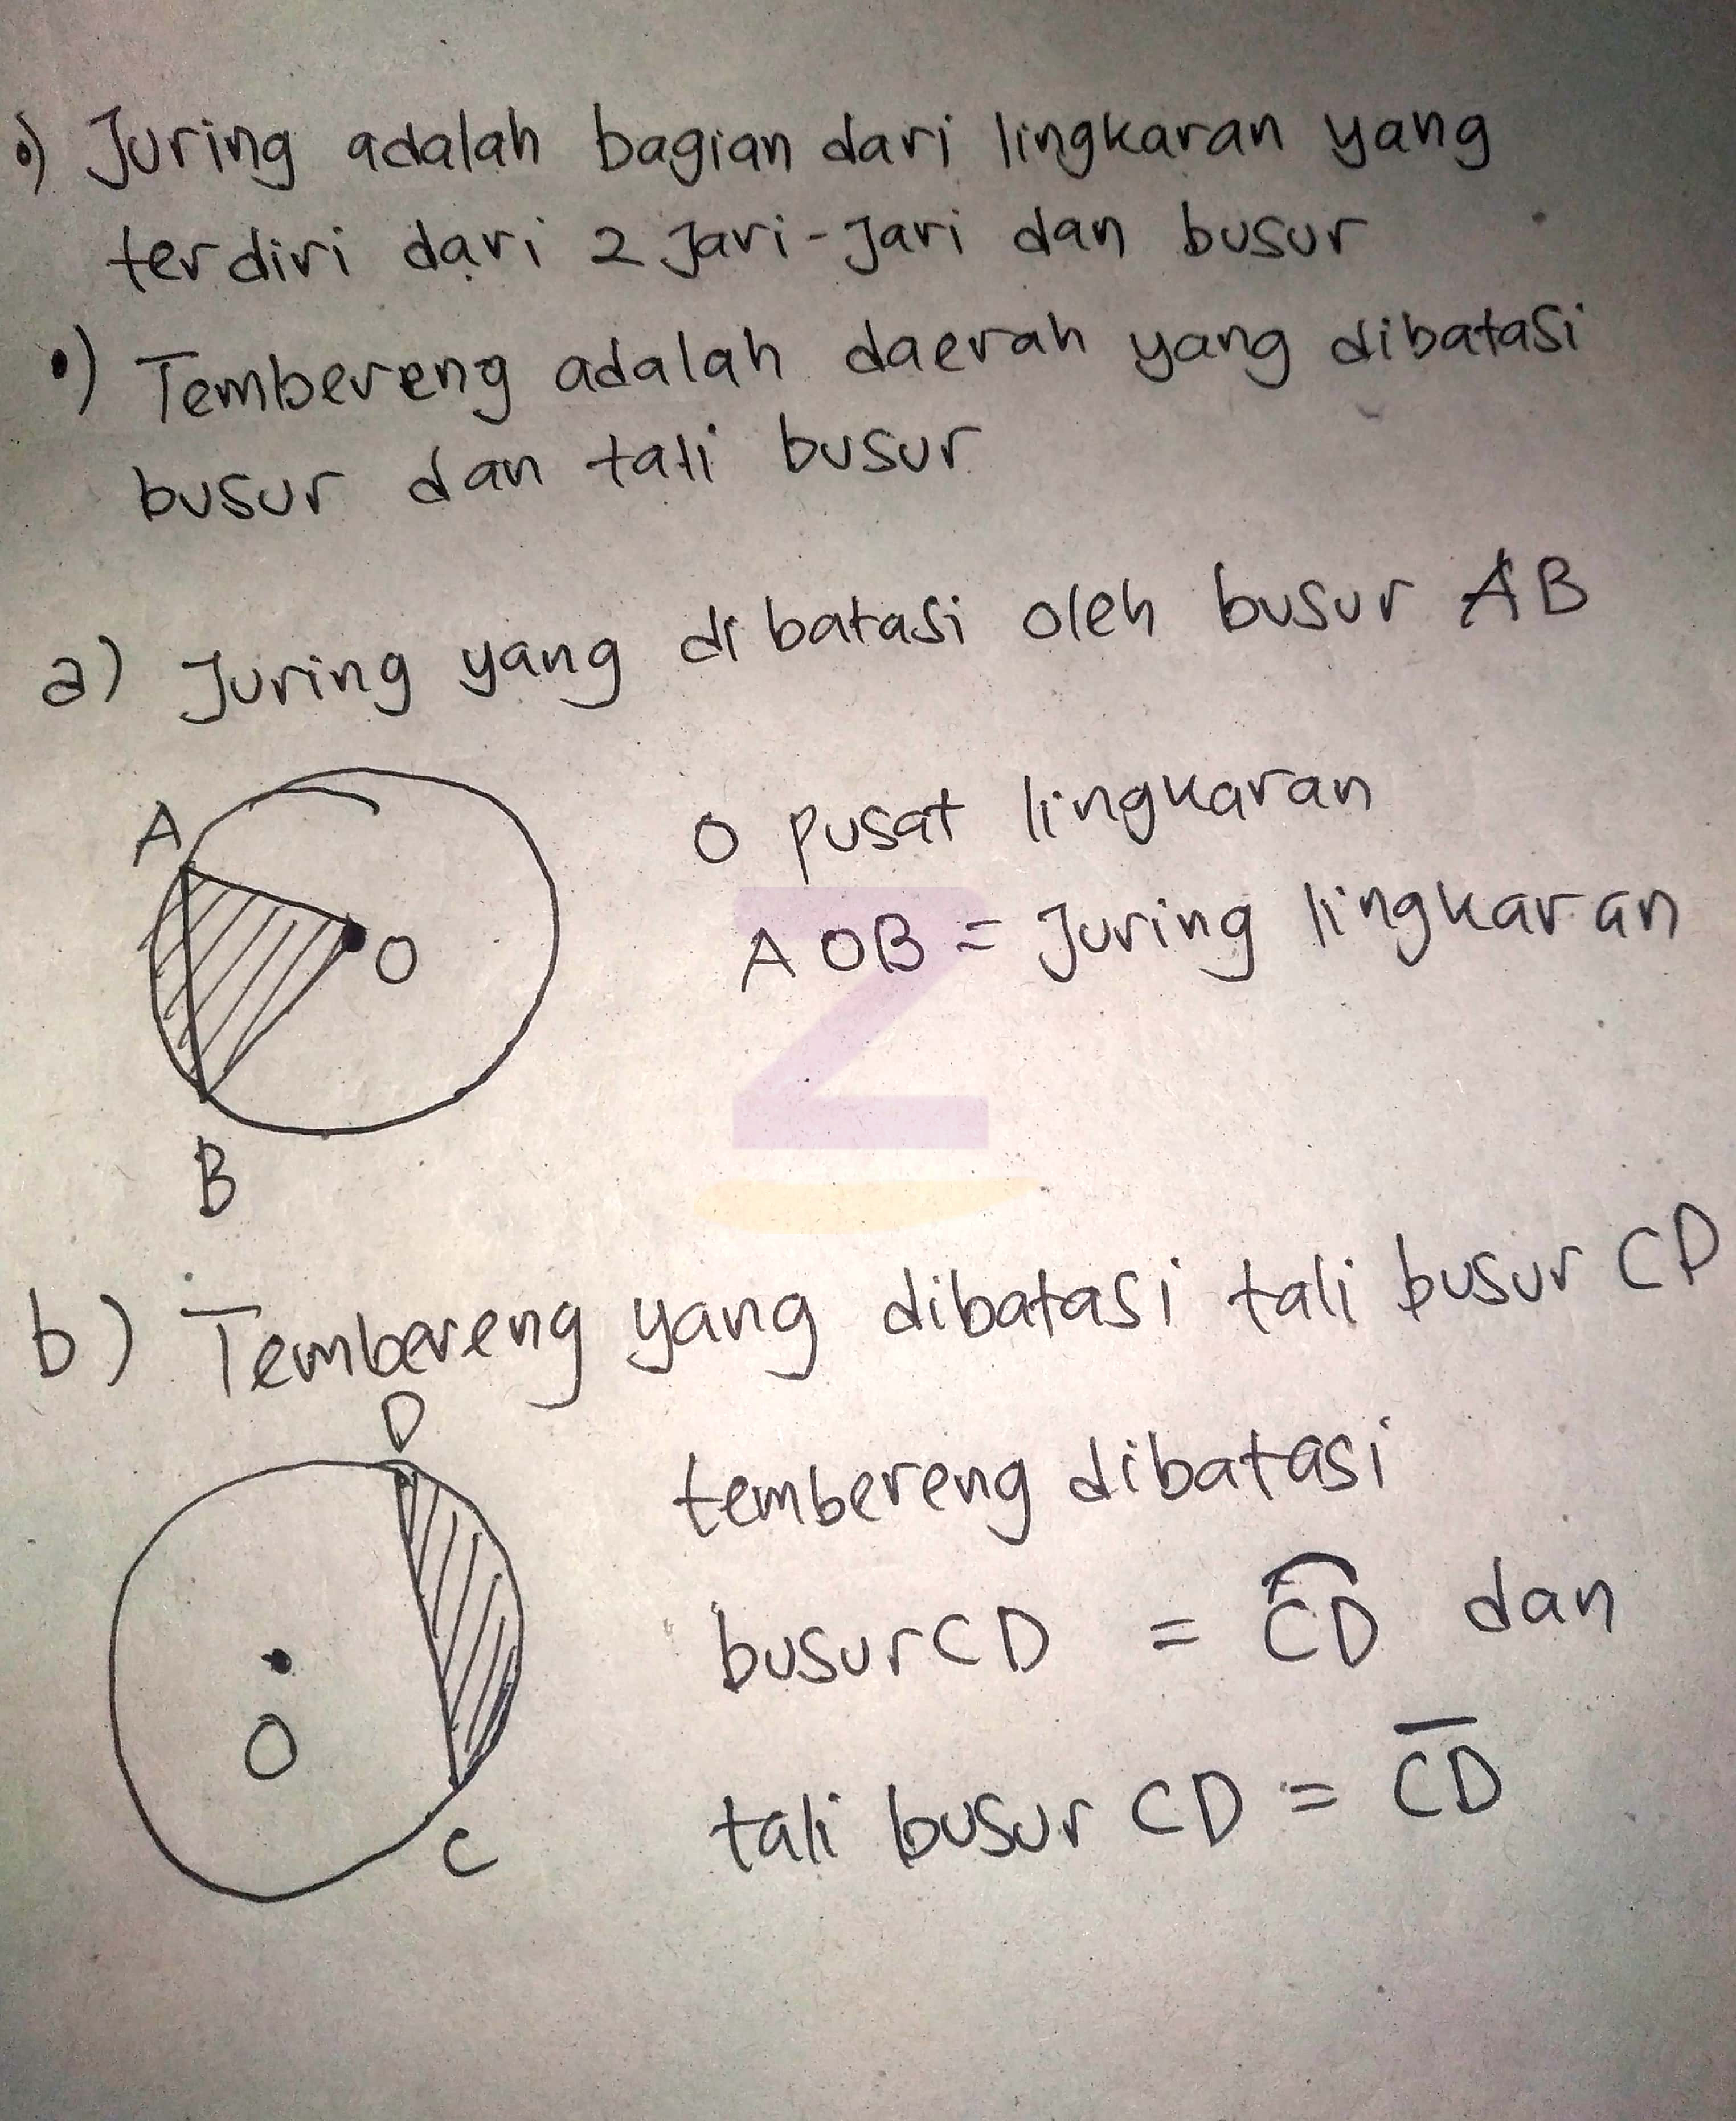 •) Juring adalah bagian dari lingkaran yang
terdiri dari 2 Jari-Jari dan busur
•) Tembereng adalah daerah yang dibatasi
busur dan tali busur
a) Juring yang dibatasi oleh busur AB
A
O
B
O pusat lingkaran
AOB = Juring lingkaran
Z
b) Tembereng yang dibatasi tali busur CD
D
O
C
tembereng dibatasi
busur CD = C͡D dan
tali busur CD = C̅D̅